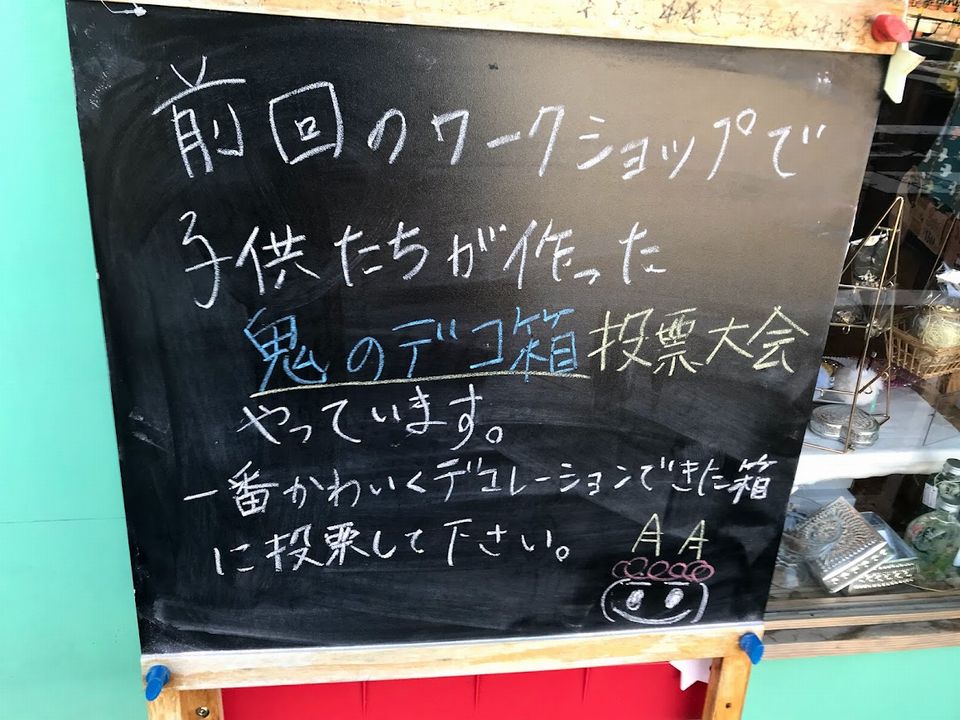 前回のワークショップで
子供たちが作った
鬼のデコ箱投票大会
やっています。
一番かわいくデコレーションできた箱
に投票して下さい。